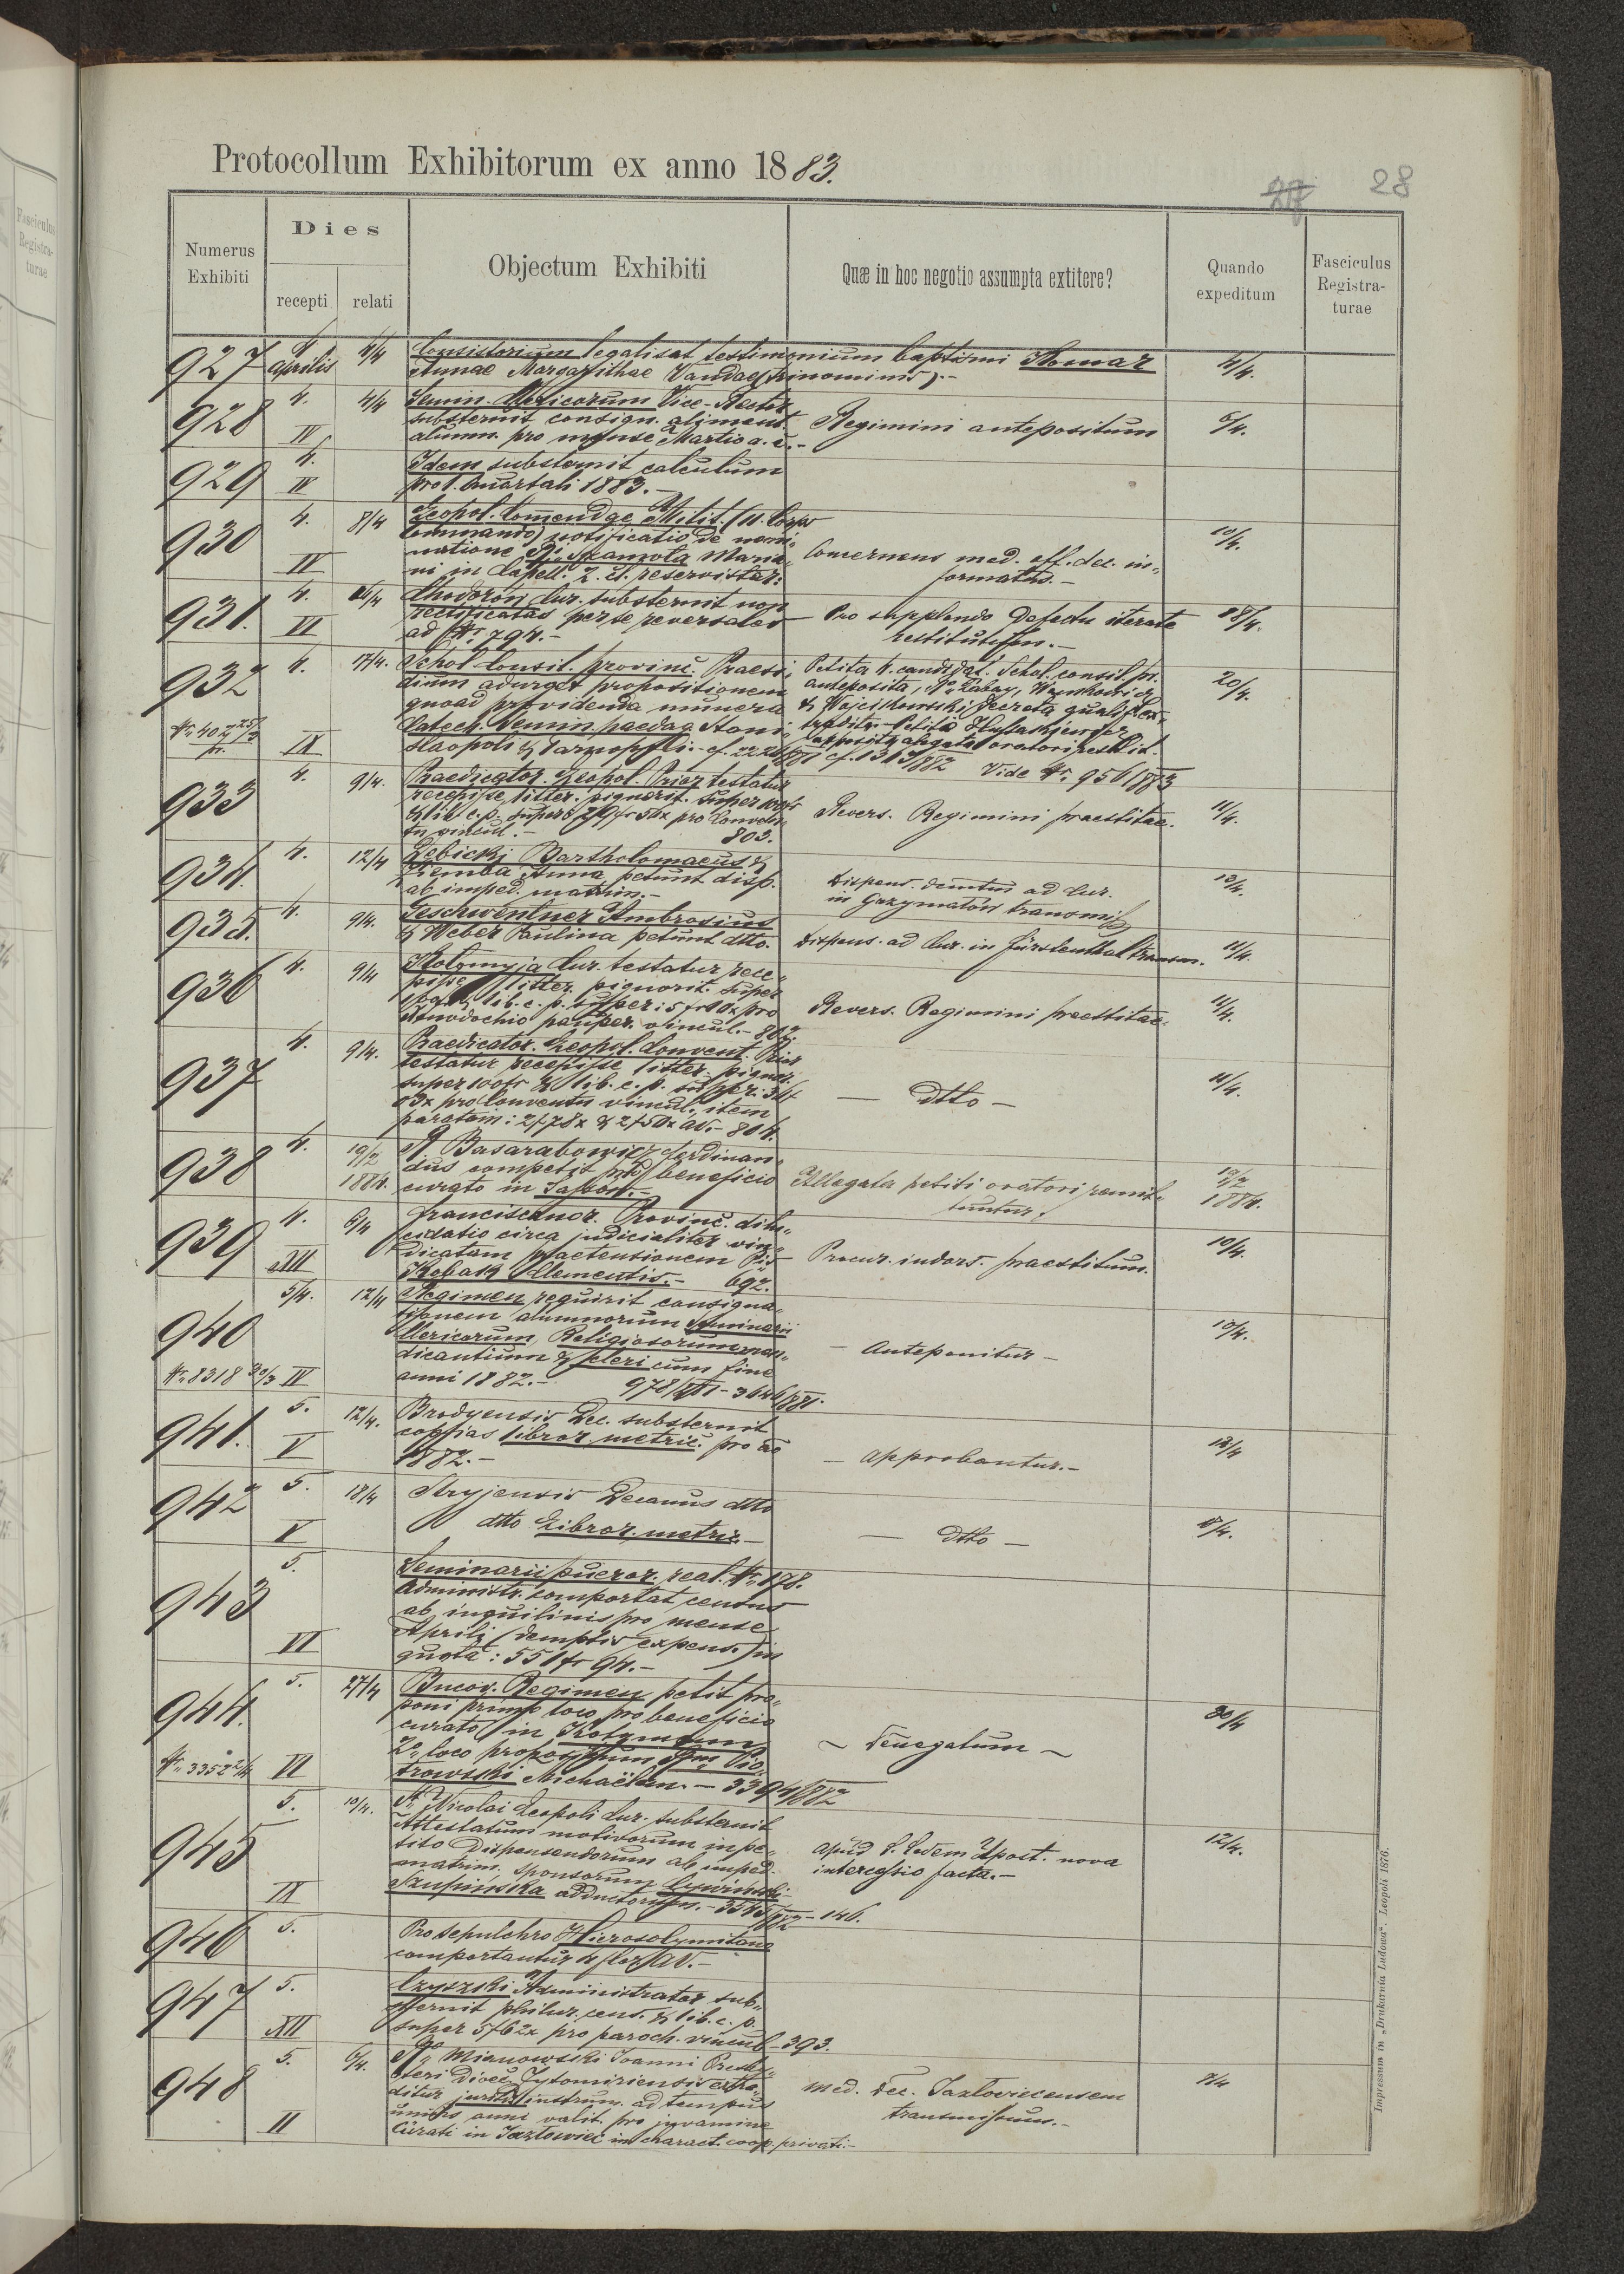 Protocollum Exhibitorum ex anno 1883.
28
Numerus Exhibiti
Dies
recepti
relati
Objectum Exhibiti
Quæ in hoc negotio assumpta extitere?
Quando expeditum
Fasciculus Registra-
turae
927
4
aprilis
4/4
Consistorium legalisat testimonium baptismi
Annae Margarithae Vandae (trinominis).-
4/4.
928
4.
IV
4/4
Semin. Clericorum Vice-Rector
substernit consign. aliment.
alumn. pro mense Martio a. c.-
Regimini antepositum
6/4.
929
4.
IV
Idem substernit calculum
pro I. Quartali 1883.-
930
4.
IV
8/4
Leopol. Comendae Milit. (11. Corps
Commando) notificatio de nomi„
natione Maria„
ni in Capell. 2. cl. reservistar.
Concernens med. off. dec. in„
formatus.-
10/4.
931.
4.
VI
Chodorów Cur. substernit non
rectificatas per se reversales
ad Nr. 794.-
Pro supplendo defectu iterate
restitutum.-
18/4.
932
Nr. 402 25/3
pr.
4.
IX
17/4.
Schol. Consil. provinc. Praesi„
dium adurget propositionem
quoad providenda munera
Catech. Semin. paedag. Stani„
slaopoli & Tarnopoli.- cf. 1313/882 Vide Nr. 956/883
Petita 4. candidat. Schol. consil. pr.
anteposita,
& Wojcikowski decreta qualific.
oratori restit.
20/4.
933
4.
9/4.
Praedicator. Leopol. Prior testatur
recepisse litter. pignorit. super 100fr
& lib. c. p. super pro Convent.
vincul.- 803.
Revers. Regimini praestitae.
11/4.
934.
4.
12/4
Dębicki Bartholomaeus &
Ziemba Anna petunt disp.
ab imped. matrim.-
Dispens. demtus ad Cur.
in Grzymałów transmis.
13/4.
935.
4.
9/4.
Geschwentner Ambrosius
& Weber Paulina petunt dtto.
Dispens. ad Cur. in Fürstenthal transm.
11/4.
936
4.
9/4
Kołomyja Cur. testatur rece„
pisse litter. pignorit. super
lib. c. p. super: 5 fr 10x pro
Xenodochio pauper. vincul.- 802
Revers. Regimini praestitae.
11/4.
937
4.
9/4.
Praedicator. Leopol. Convent. Prior
testatur recepisse litter. pignor.
super 100fr & lib. c. p. super: 34f
03x pro Conventu vincul., item
paratam: 2f 78x & 2f 50x av.- 804.
— dtto —
11/4.
938
4.
19/2
1884.
R. Basarabowicz Ferdinan„
dus competit pro beneficio
curato in Sassów.-
Allegata petiti oratori remit„
tuntur.
19/2
1884.
939
4.
XII
6/4
Franciscanor. Provinc. dilu„
cidatio circa judicialiter vin„
dicatam praetensionem Pis
Kobak Clementis.- 692.
Procur. indors. praestitum.
10/4.
940
Nr. 8318 30/3
5/4.
IV
12/4
Regimen requirit consigna„
tionem alumnorum Seminarii
Clericorum, Religiosorum men„
dicantium & cleri cum fine
anni 1882.- 978/ - 3646/881.
— Anteponitur —
13/4.
941.
5.
V
12/4.
Brodyensis Dec. substernit
coppias libror. metric. pro ao
1882.-
— approbantur.-
13/4
942
5.
V
18/4
Stryjensis Decanus dtto
dtto Libror. metric.-
— dtto —
943
5.
VI
Seminarii pueror. real. Nr. 178.
Administr. comportat census
ab inquilinis pro mense
Aprili (demptis expens.) in
quota: 551 fr 94.-
944.
Nr. 3352 2/4
5.
VI
27/4
Bucov. Regimen petit pro„
poni primo loco pro beneficio
curato in
2o loco propositum Rum Pio„
trowski Michaëlem.- 3394/882
~ Denegatum ~
30/4
945
5.
IX
10/4.
St. Nicolai Leopoli Cur. substernit
Attestatum motivorum in pe„
tito Dispensandorum ab imped.
matrim. sponsorum
Szupińska adductorum.- 3345/882 - 146.
apud S. Sedem Apost. nova
intercessio facta.-
12/4.
946
5.
Pro Sepulchro Hierosolymitano
comportantur
947
5.
XII
Czyszki Administrator sub„
sternit philur. cens. & lib. c. p.
super 5f 62x pro paroch. vincul.- 393.
948
5.
II
6/4.
Mianowski Joanni Presby„
teri Dioec. Żytomiriensis extra„
ditur instrum. ad tempus
unius anni valit. pro juvamine
Curati in Jazłowiec in charact. coop. privati.-
Med. Dec. Jazlovicensem
transmissum.-
7/4
Impressum in „Drukarnia Ludowa“. Leopoli 1876.